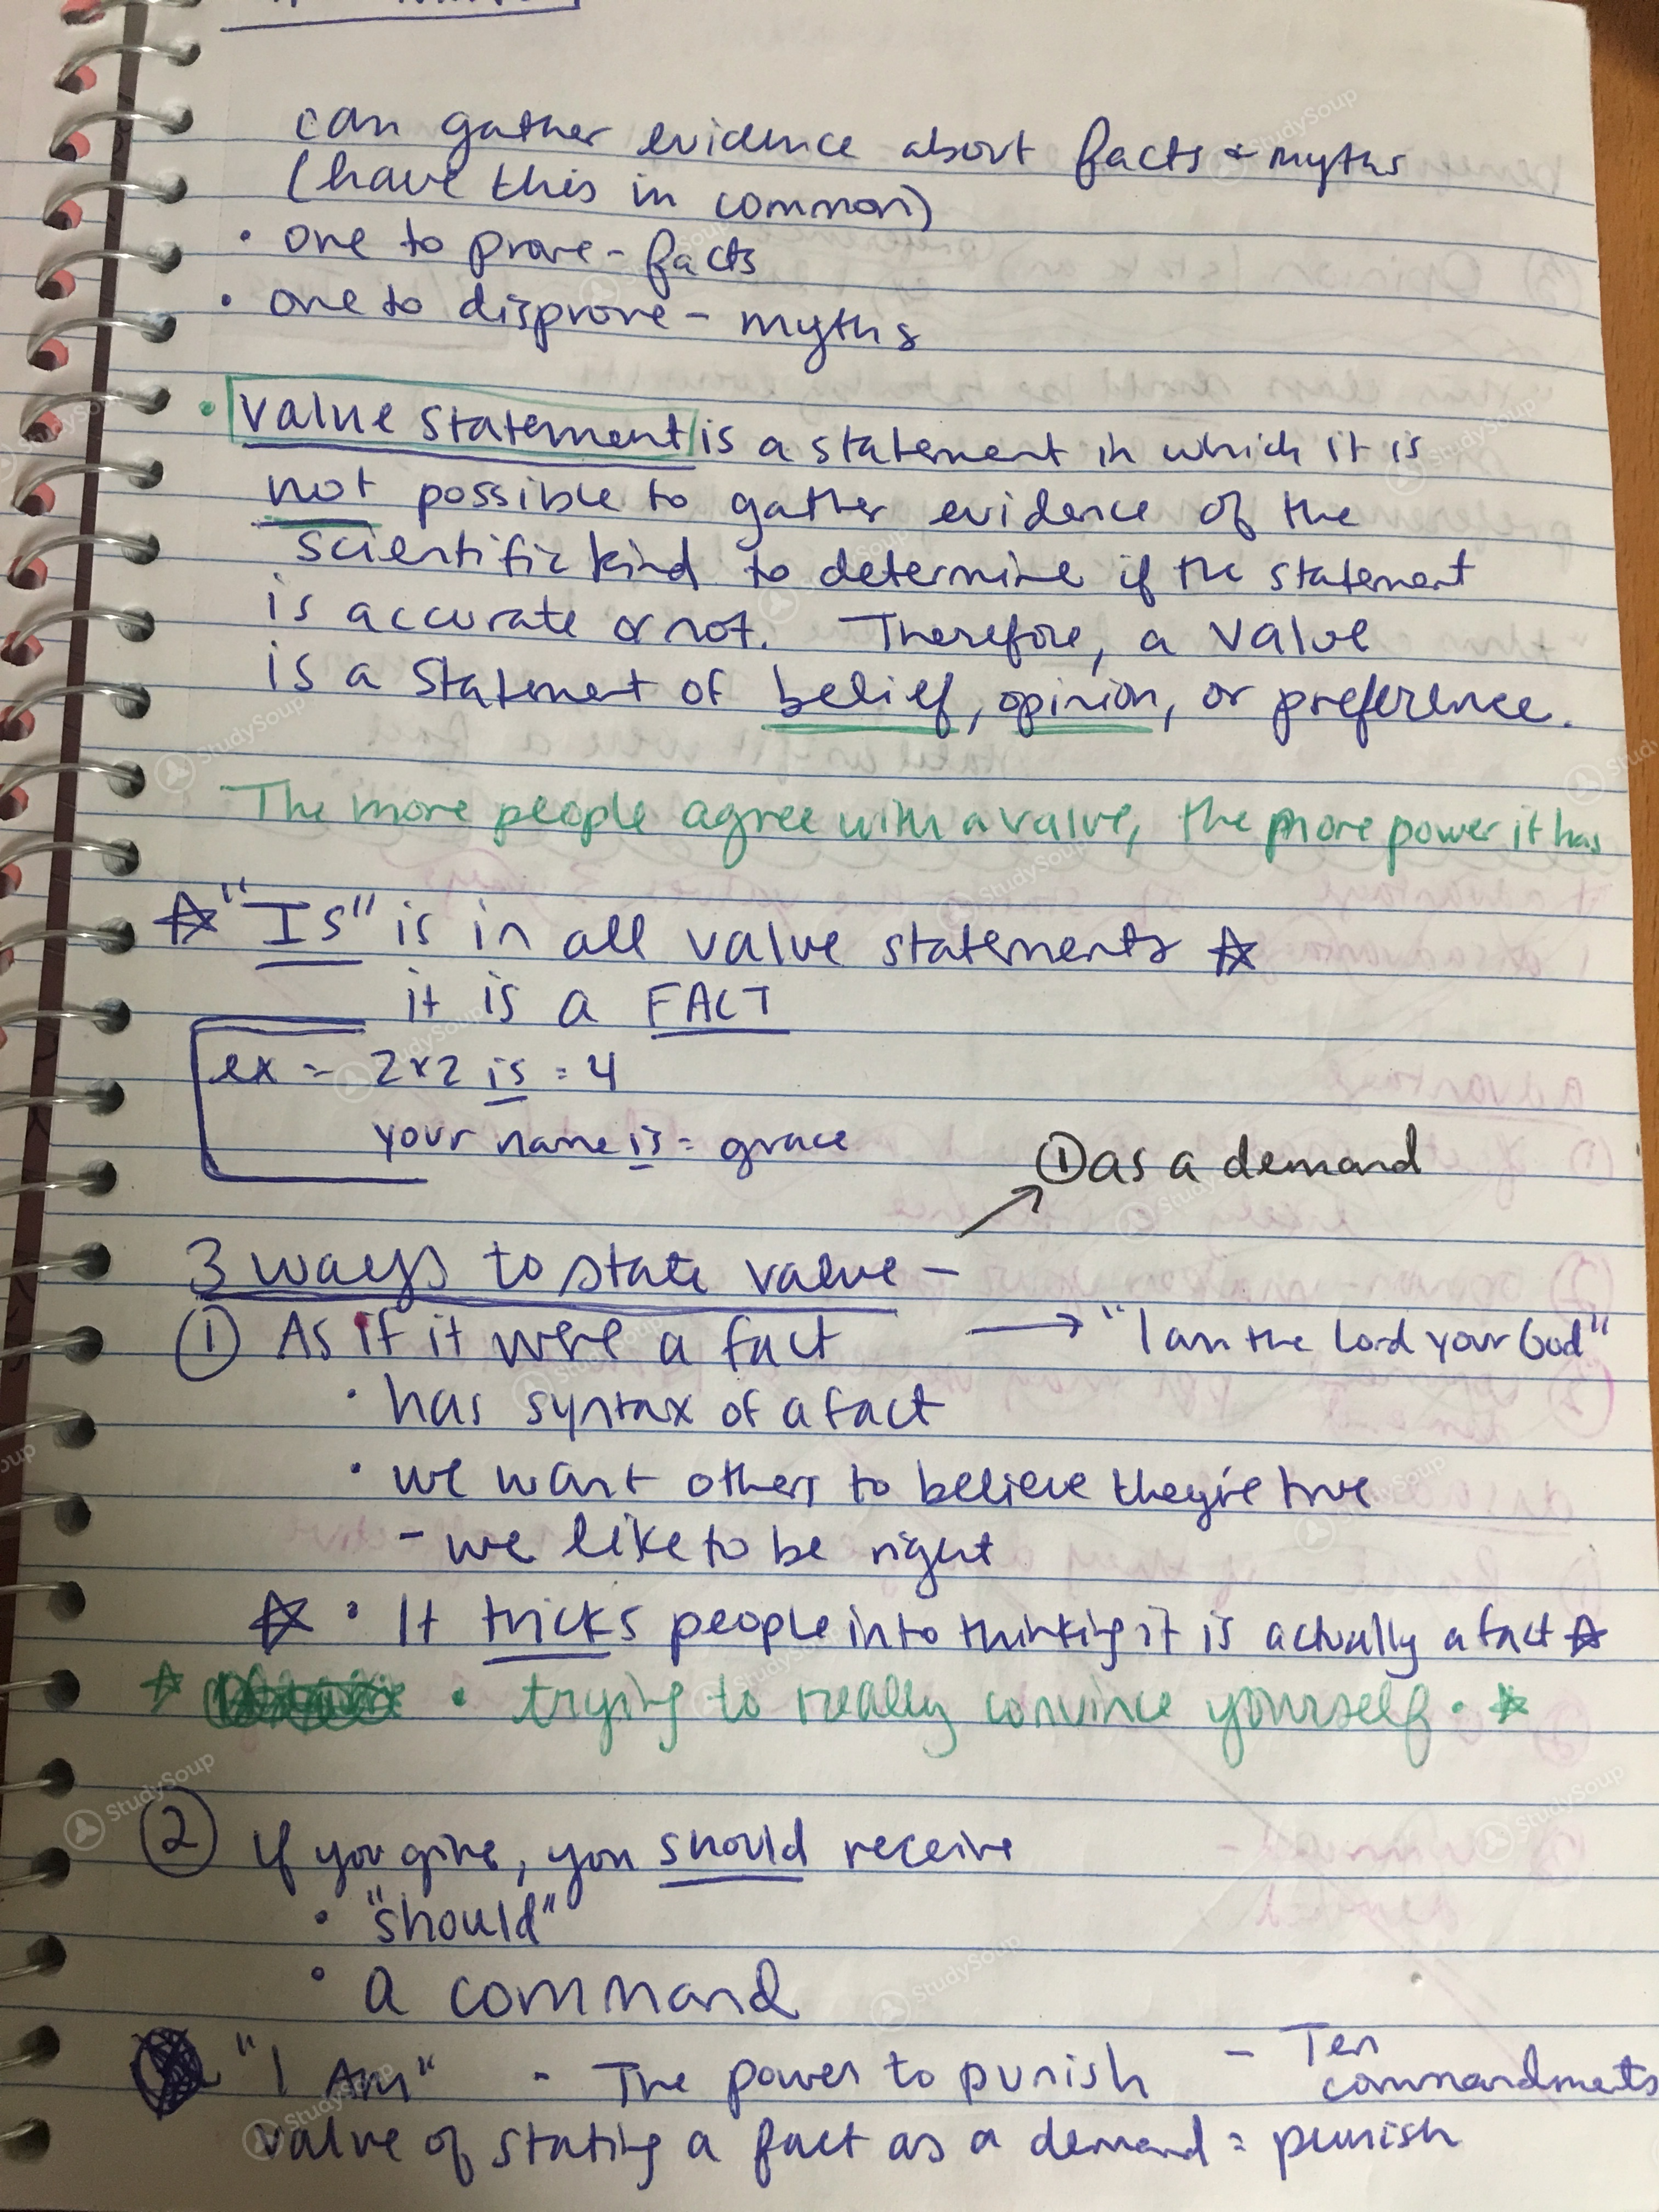 can gather evidence about facts + myths
(have this in common)
• one to prove - facts
• one to disprove - myths
• Value statement is a statement in which it is
not possible to gather evidence of the
scientific kind to determine if the statement
is accurate or not. Therefore, a value
is a statement of belief, opinion, or preference.
The more people agree with a value, the more power it has
☆ "Is" is in all value statements ☆
it is a FACT
ex - 2x2 is = 4
your name is = grace
① as a demand
3 ways to state value -
① As if it were a fact → "I am the Lord your God"
• has syntax of a fact
• we want others to believe they're true
- we like to be right
☆ • It tricks people into thinking it is actually a fact ☆
☆ • trying to really convince yourself • ☆
② If you give, you should receive
• "should"
• a command
"I Am" - The power to punish - Ten
commandments
value of stating a fact as a demand = punish
StudySoup